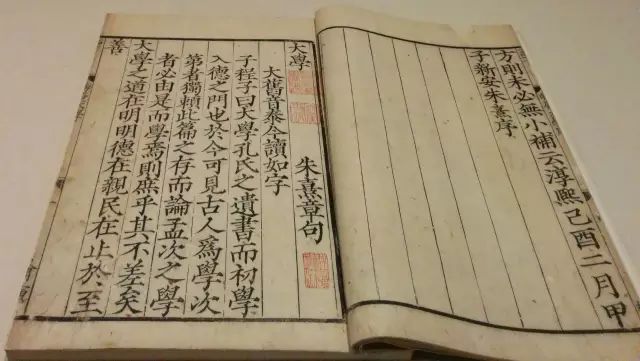 方則未必無小補云淳熙己酉二月甲
子新安朱熹序
大學
朱熹章句
大舊音泰今讀如字
子程子曰大學孔氏之遺書而初學
入德之門也於今可見古人爲學次
第者獨頼此篇之存而論孟次之學
者必由是而學焉則庶乎其不差矣
大學之道在明明德在親民在止於至
善